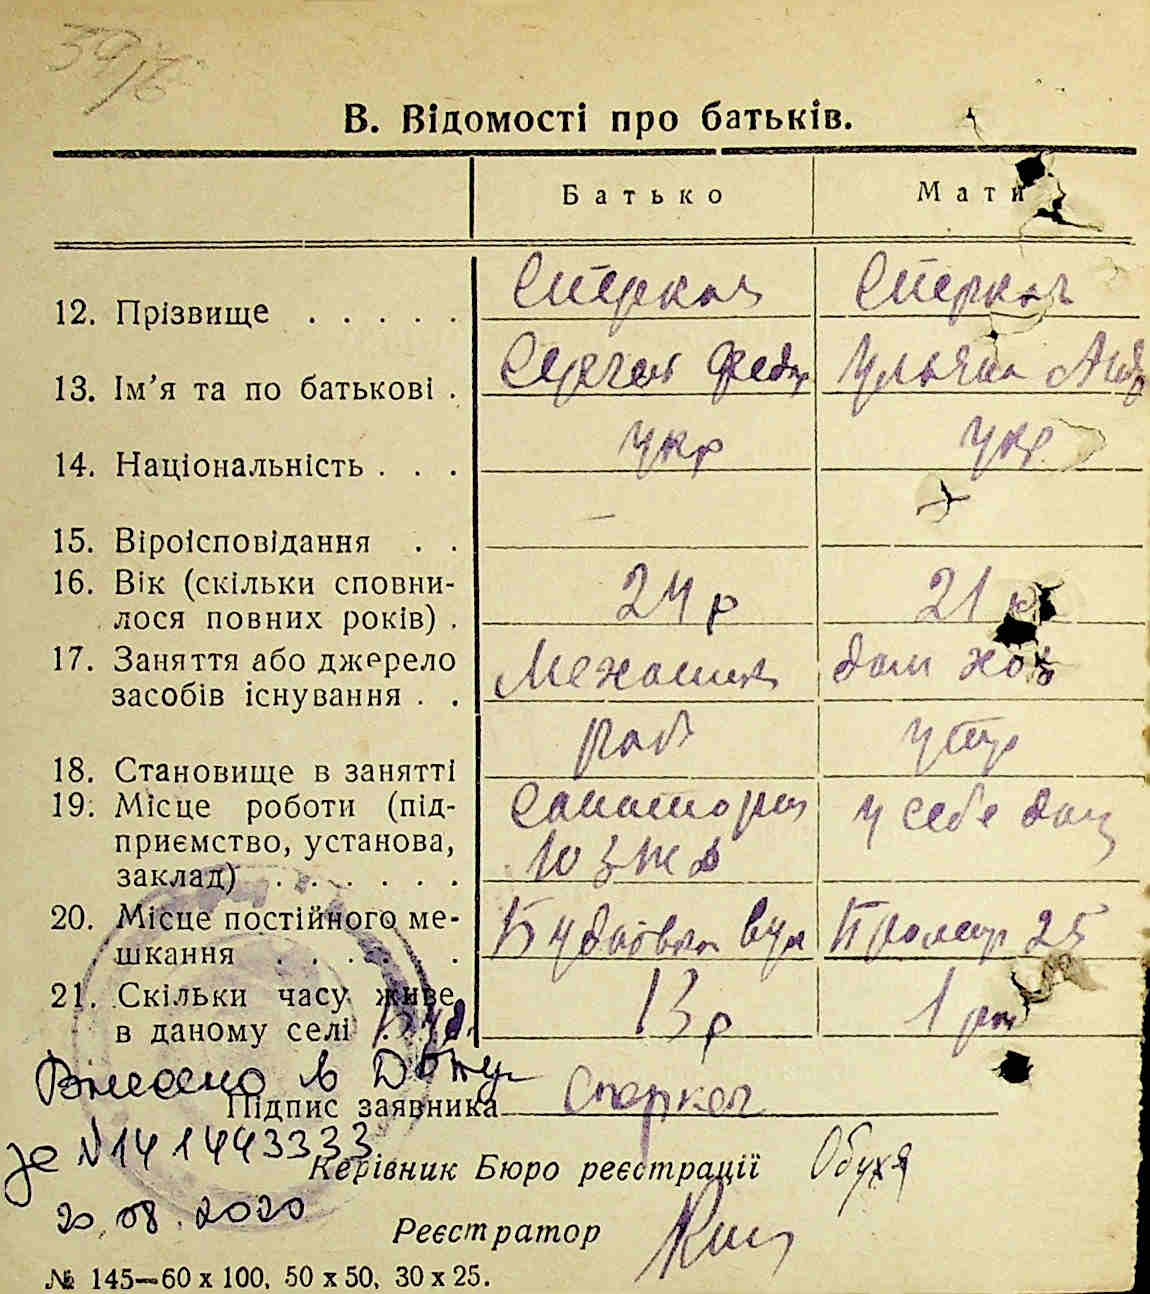 39/6
В. Відомості про батьків.
Батько Мати
12. Прізвище . . . . . Стеркач Стеркач
13. Ім’я та по батькові . Сергей Федор Ульяна Анд
14. Національність . . . укр укр
15. Віроісповідання . . —
16. Вік (скільки сповни-
лося повних років) . 24 р 21 р
17. Заняття або джерело
засобів існування . . Механик дом хоз
18. Становище в занятті роб утр
19. Місце роботи (під-
приємство, установа,
заклад) . . . . . . Санатори у себе дома
20. Місце постійного ме-
шкання . . . . . Будьовка вул Пролетар 25
21. Скільки часу живе
в даному селі . Буд. 13 р 1 рік
Внесено в ДРАЦС
Підпис заявника Стеркач
за №141443333
Керівник Бюро реєстрації Обухя
20.08.2020
Реєстратор
№ 145—60 х 100, 50 х 50, 30 х 25.